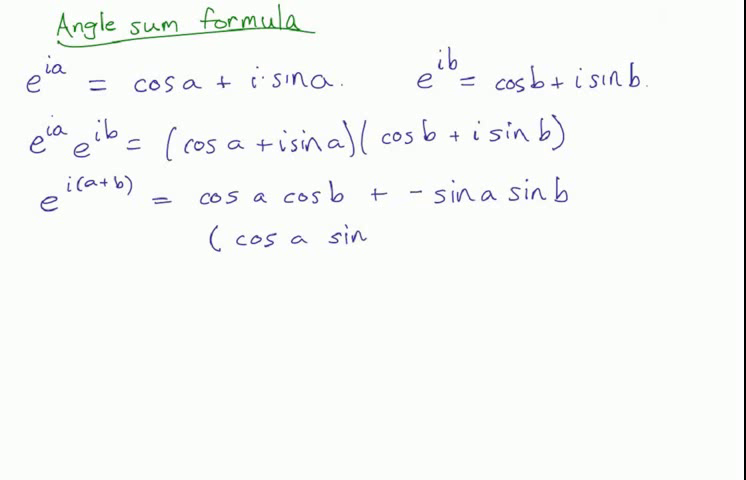 Angle sum formula
e^{ia} = cos a + i·sin a. e^{ib} = cos b + i sin b.
e^{ia} e^{ib} = (cos a + i sin a)(cos b + i sin b)
e^{i(a+b)} = cos a cos b + - sin a sin b
( cos a sin